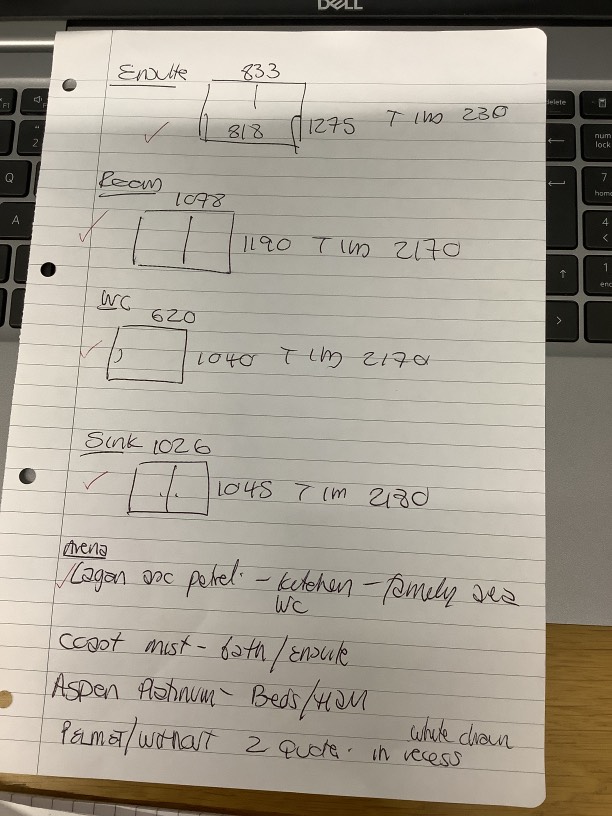 DELL
Ensuite 833
818 1275 T Im 230
Room
1098
1190 T Im 2170
WC 620
1040 T Im 2170
Sink 1026
1045 T Im 2180
Arena
Lagan petrel. - Kitchen - family
WC
Coast mist - bath / ensuite
Aspen Platinum - Beds /
Pelmet / without 2 Quote. in recess
white chain